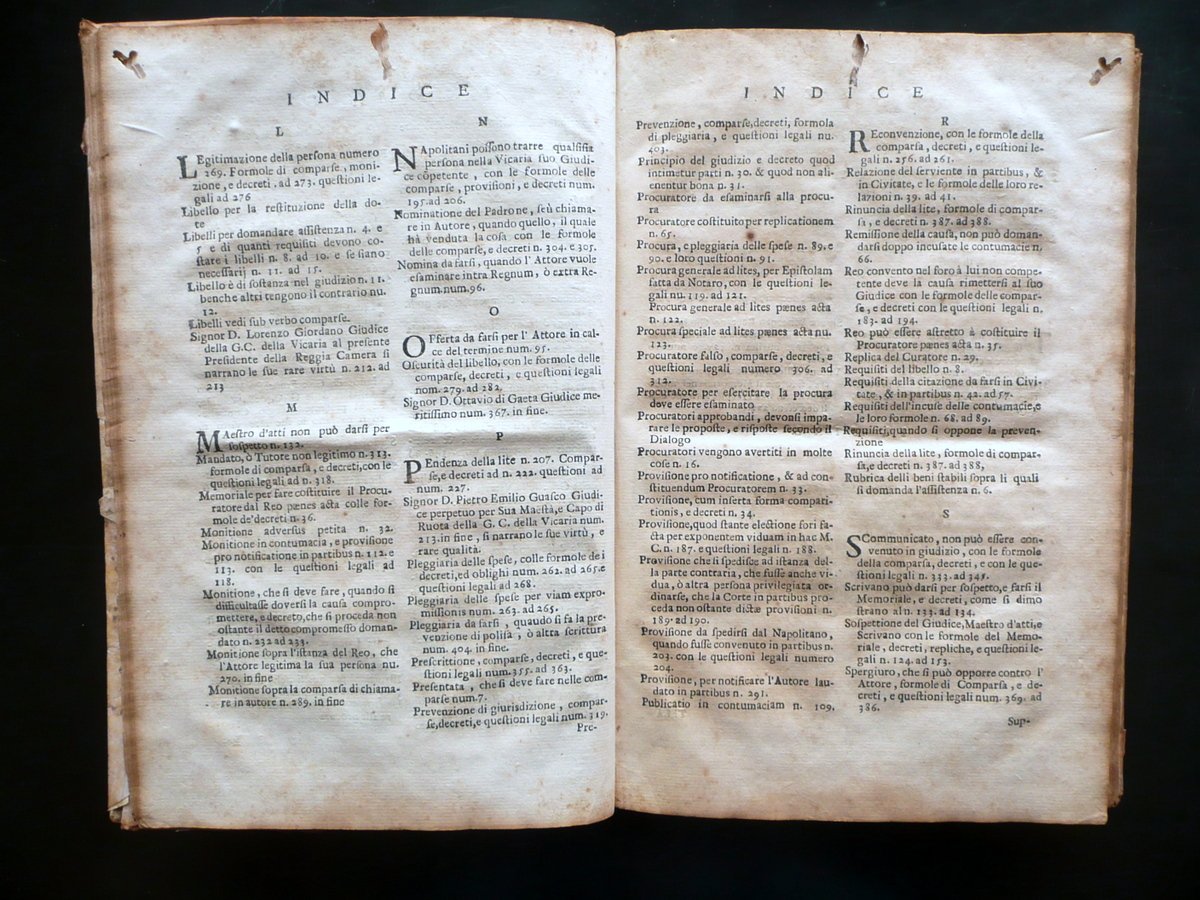 INDICE
L
LEgitimazione della persona numero
269. Formole di comparse, moni-
zione, e decreti, ad 273. questioni le-
gali ad 276
Libello per la restituzione della do-
te
Libelli per domandare assistenza n. 4. e
5 e di quanti requisiti devono co-
stare i libelli n. 8. ad 10. e se siano
necessarij n. 11. ad 15.
Libello è di sostanza nel giudizio n. 11.
benche altri tengono il contrario nu.
12.
Libelli vedi sub verbo comparse.
Signor D. Lorenzo Giordano Giudice
della G.C. della Vicaria al presente
Presidente della Reggia Camera si
narrano le sue rare virtù n. 212. ad
213
M
MAestro d'atti non può darsi per
sospetto n. 132.
Mandato, ò Tutore non legitimo n. 313.
formole di comparsa, e decreti, con le
questioni legali ad n. 318.
Memoriale per fare costituire il Procu-
ratore dal Reo pænes acta colle for-
mole de'decreti n. 36.
Monitione adversus petita n. 32.
Monitione in contumacia, e provisione
pro notificatione in partibus n. 112. e
113. con le questioni legali ad
118.
Monitione, che si deve fare, quando si
difficultasse doversi la causa compro-
mettere, e decreto, che si proceda non
ostante il detto compromesso doman-
dato n. 232 ad 233.
Monitione sopra l'istanza del Reo, che
l'Attore legitima la sua persona nu.
270. in fine
Monitione sopra la comparsa di chiama-
re in autore n. 289. in fine
N
NApolitani possono trarre qualsisia
persona nella Vicaria suo Giudi-
ce cõpetente, con le formole delle
comparse, provisioni, e decreti num.
195. ad 206.
Nominatione del Padrone, seù chiama-
re in Autore, quando quello, il quale
hà venduta la cosa con le formole
delle comparse, e decreti n. 304. e 305.
Nomina da farsi, quando l'Attore vuole
esaminare intra Regnum, ò extra Re-
gnum. num. 96.
O
OFferta da farsi per l'Attore in cal-
ce del termine num. 95.
Oscurità del libello, con le formole delle
comparse, decreti, e questioni legali
nom. 279. ad 282.
Signor D. Ottavio di Gaeta Giudice me-
ritissimo num. 367. in fine.
P
PEndenza della lite n. 207. Compar-
se, e decreti ad n. 222. questioni ad
num. 227.
Signor D. Pietro Emilio Guasco Giudi-
ce perpetuo per Sua Maestà, e Capo di
Ruota della G. C. della Vicaria num.
213. in fine, si narrano le sue virtù, e
rare qualità.
Pleggiaria delle spese, colle formole dei
decreti, ed oblighi num. 262. ad 265. e
questioni legali ad 268.
Pleggiaria delle spese per viam expro-
missionis num. 263. ad 265.
Pleggiaria da farsi, quaudo si fa la pre-
venzione di polisa, ò altra scrittura
num. 404. in fine.
Prescrittione, comparse, decreti, e que-
stioni legali num. 355. ad 363.
Presentata, che si deve fare nelle com-
parse num. 7.
Prevenzione di giurisdizione, compar-
se, decreti, e questioni legali num. 319.
Pre-
INDICE
Prevenzione, comparse, decreti, formola
di pleggiaria, e questioni legali nu.
403.
Principio del giudizio e decreto quod
intimetur parti n. 30. & quod non ali-
enentur bona n. 31.
Procuratore da esaminarsi alla procu-
ra
Procuratore costituito per replicationem
n. 65.
Procura, e pleggiaria delle spese n. 89. e
90. e loro questioni n. 91.
Procura generale ad lites, per Epistolam
fatta da Notaro, con le questioni le-
gali nu. 119. ad 121.
Procura generale ad lites pænes acta
n. 122.
Procura speciale ad lites pænes acta nu.
123.
Procuratore falso, comparse, decreti, e
questioni legali numero 306. ad
312.
Procuratore per esercitare la procura
dove essere esaminato
Procuratori approbandi, devonsi impa-
rare le proposte, e risposte secondo il
Dialogo
Procuratori vengòno avertiti in molte
cose n. 16.
Provisione pro notificatione, & ad con-
stituendum Procuratorem n. 33.
Provisione, cum inserta forma compari-
tionis, e decreti n. 34.
Provisione, quod stante electione fori fa-
cta per exponentem viduam in hac M.
C. n. 187. e questioni legali n. 188.
Provisione che si spedisce ad istanza del-
la parte contraria, che fusse anche vi-
dua, ò altra persona privilegiata or-
dinarse, che la Corte in partibus pro-
ceda non ostante dictæ provisioni n.
189. ad 190.
Provisione da spedirsi dal Napolitano,
quando fusse convenuto in partibus n.
203. con le questioni legali numero
204.
Provisione, per notificare l'Autore lau-
dato in partibus n. 291.
Publicatio in contumaciam n. 109.
R
REconvenzione, con le formole della
comparsa, decreti, e questioni le-
gali n. 256. ad 261.
Relazione del serviente in partibus, &
in Civitate, e le formole delle loro re-
lazioni n. 39. ad 41.
Rinuncia della lite, formole di compar-
sa, e decreti n. 387. ad 388.
Remissione della causa, non può doman-
darsi doppo incusate le contumacie n.
66.
Reo convento nel foro à lui non compe-
tente deve la causa rimettersi al suo
Giudice con le formole delle compar-
se, e decreti con le questioni legali n.
183. ad 194.
Reo può essere astretto à costituire il
Procuratore pænes acta n. 35.
Replica del Curatore n. 29.
Requisiti del libello n. 8.
Requisiti della citazione da farsi in Civi-
tate, & in partibus n. 42. ad 57.
Requisiti dell'incuse delle contumacie, e
le loro formole n. 68. ad 89.
Requisiti, quando si oppone la preven-
zione
Rinuncia della lite, formole di compar-
sa, e decreti n. 387. ad 388,
Rubrica delli beni stabili sopra li quali
si domanda l'assistenza n. 6.
S
SCommunicato, non può essere con-
venuto in giudizio, con le formole
della comparsa, decreti, e con le que-
stioni legali n. 333. ad 345.
Scrivano può darsi per sospetto, e farsi il
Memoriale, e decreti, come si dimo
strano al n. 133. ad 134.
Sospettione del Giudice, Maestro d'atti, e
Scrivano con le formole del Memo-
riale, decreti, repliche, e questioni le-
gali n. 124. ad 153.
Spergiuro, che si può opporre contro l'
Attore, formole di Comparsa, e de-
creti, e questioni legali num. 369. ad
386.
Sup-